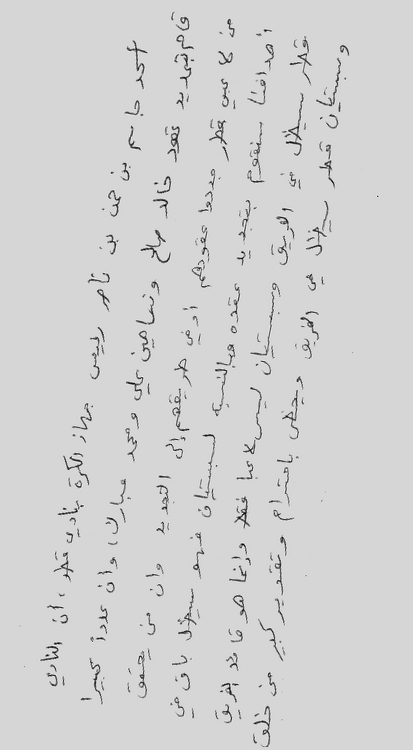 أحمد جاسم بن حمد بن ناصر رئيس جهاز الكرة بنادي قطر، أن النادي
قام بتجديد عقود خالد صالح علي ومحمد مبارك، وأن عدداً كبيرا
من لاعبي قطر جددوا عقودهم أو في طريقهم إلى التجديد وأن من يحقق
أهدافنا سنقوم بتجديد عقده وبالنسبة لسبستيان فهو سيظل باق في
قطر سيظل في الفريق وسبستيان ليس لاعبا فقط وإنما هو قائد الفريق
وسبستيان قطر سيظل في الفريق ويحظى باحترام وتقدير كبير من خلق